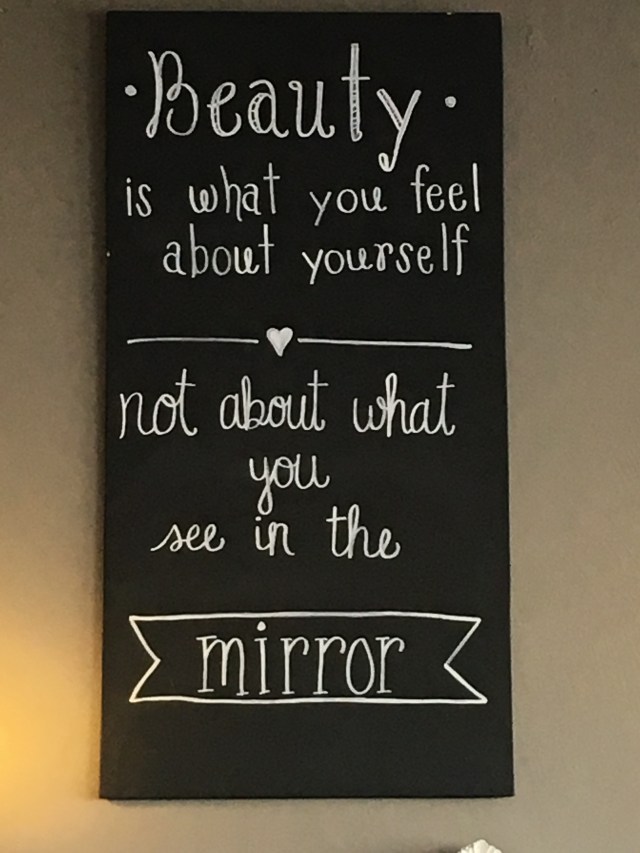 ·Beauty·
is what you feel
about yourself
not about what
you
see in the
mirror